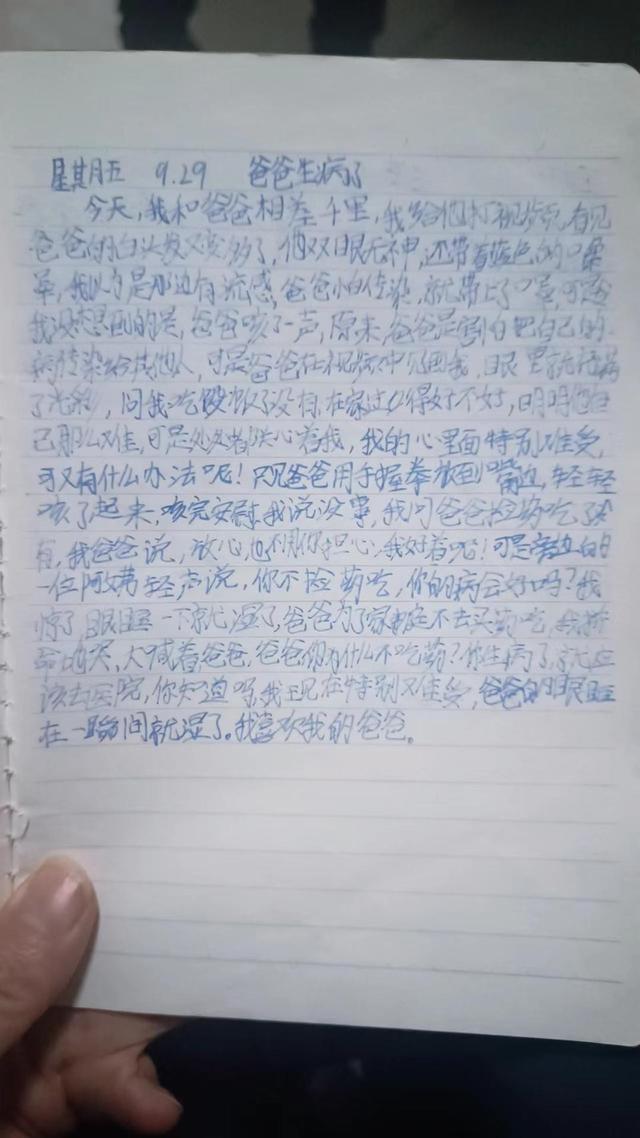 星期五 9.29 爸爸生病了
今天,我和爸爸相差千里,我给他打视频,看见
爸爸的白头发又变多了,他双眼无神,还带着蓝色的口罩
,我以为是那边有流感,爸爸怕传染,就带上了口罩,可是
我没想到的是,爸爸咳了一声,原来,爸爸是害怕把自己的
病传染给其他人,可是爸爸在视频中见到我,眼里就充满
了光彩,问我吃饭了没有,在家过得好不好,明明他自
己那么难,可是处处都关心着我,我的心里面特别难受,
可又有什么办法呢!只见爸爸用手握拳放到嘴边,轻轻
咳了起来,咳完安慰我说没事,我问爸爸捡药吃了没
有,我爸爸说,放心,也不用你担心,我好着呢!可是旁边的
一位阿姨轻声说,你不捡药吃,你的病会好吗?我
惊了,眼睛一下就湿了,爸爸为了家庭不去买药吃,我拼
命地哭,大喊着爸爸,爸爸你为什么不吃药?你生病了,就应
该去医院,你知道吗,我现在特别难受,爸爸的眼睛
在一瞬间就湿了。我喜欢我的爸爸。